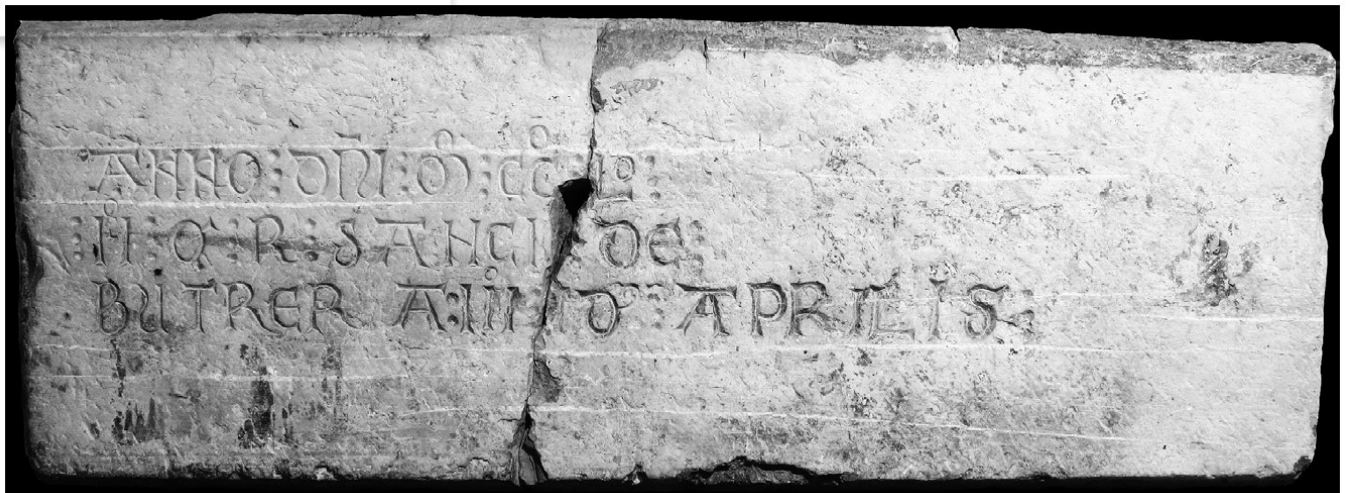 ANNO : DNI : Mº : CCº : Lº :
IIº : Q : R : SANCII : DE :
BUTRER A : III : Dº : APRILIS :